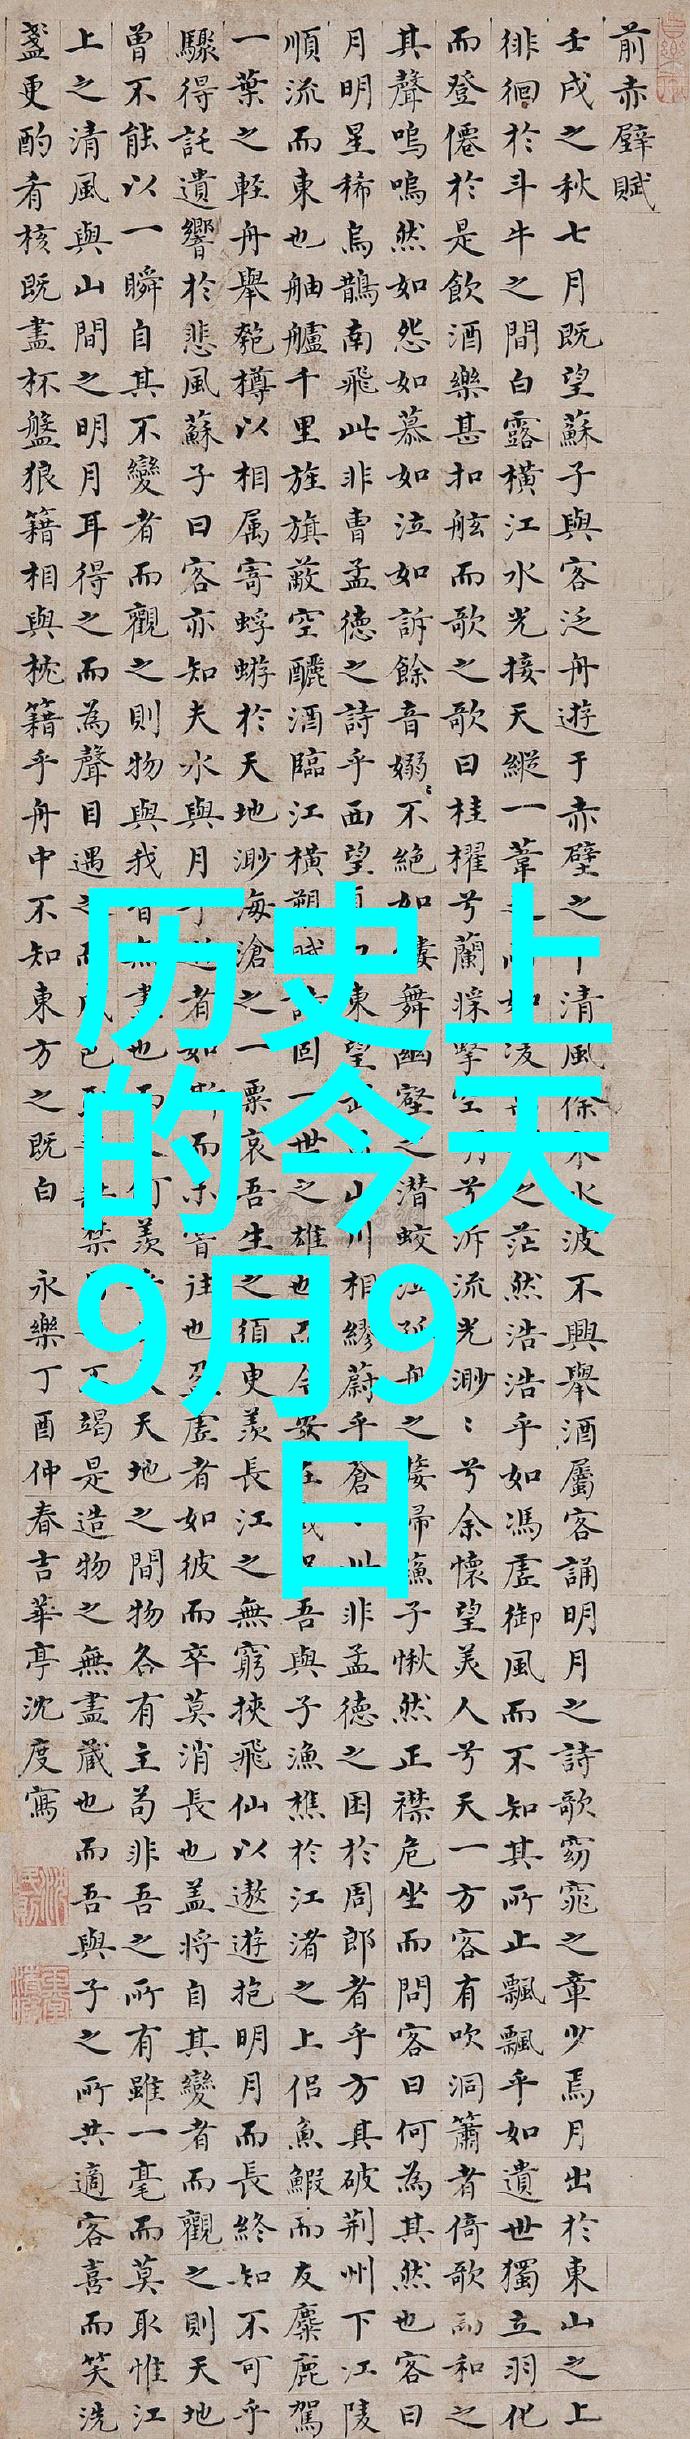 前赤壁賦
壬戌之秋七月既望蘇子與客泛舟遊于赤壁之下清風徐来水波不興舉酒屬客誦明月之詩歌窈窕之章少焉月出於東山之上
徘徊於斗牛之間白露橫江水光接天縱一葦之所如凌之茫然浩浩乎如馮虛御風而不知其所止飄飄乎如遺世獨立羽化
而登僊於是飲酒樂甚扣舷而歌之歌曰桂櫂兮蘭槳擊空明兮泝流光渺〻兮余懷望美人兮天一方客有吹洞簫者倚歌而和之
其聲嗚嗚然如怨如慕如泣如訴餘音嫋〻不絕如縷舞幽壑之潜蛟泣孤舟之嫠婦蘇子愀然正襟危坐而問客曰何為其然也客曰
月明星稀烏鵲南飛此非曹孟德之詩乎西望東望山川相繆蔚乎蒼〻此非孟德之困於周郎者乎方其破荆州下江陵
順流而東也舳艫千里旌旗蔽空釃酒臨江橫槊賦詩固一世之雄也而今安在吾與子漁樵於江渚之上侣魚鰕而友麋鹿駕
一葉之輕舟舉匏樽以相属寄蜉蝣於天地渺海滄之一粟哀吾生之須臾羨長江之無窮挾飛仙以遨遊抱明月而長終知不可乎
驟得託遺響於悲風蘇子曰客亦知夫水與月乎逝者如斯而未嘗往也盈虛者如彼而卒莫消長也盖將自其變者而觀之則天地
曾不能以一瞬自其不變者而觀之則物與我皆無盡也而何羨天地之間物各有主苟非吾之所有雖一毫而莫取惟江
上之清風與山間之明月耳得之而為聲目遇之而成色禁不竭是造物之無盡蔵也而吾與子之所共適客喜而笑洗
盞更酌肴核既盡杯盤狼籍相與枕籍乎舟中不知東方之既白 永樂丁酉仲春吉華亭沈度寫
历史上
的今天
9月9
日